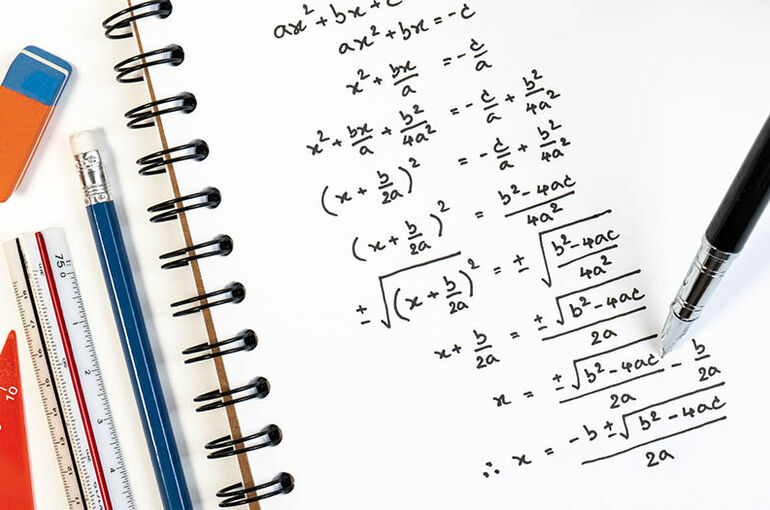 ax² + bx + c
ax² + bx = -c
x² + bx/a = -c/a
x² + bx/a + b²/4a² = -c/a + b²/4a²
(x + b/2a)² = -c/a + b²/4a²
(x + b/2a)² = b² - 4ac/4a²
±√(x + b/2a)² = ±√b² - 4ac/4a²
x + b/2a = ±√b² - 4ac/2a
x = ±√b² - 4ac/2a - b/2a
∴ x = -b ± √b² - 4ac/2a
75
1
2
3
4